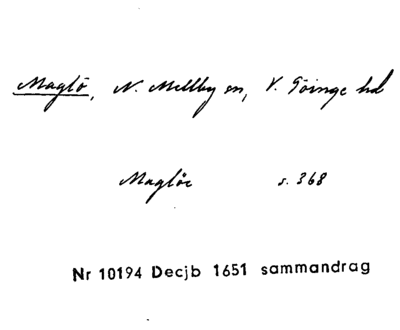 Maglö, N. Mellby sn, V. Göinge hd
Maglöe s. 368
Nr 10194 Decjb 1651 sammandrag